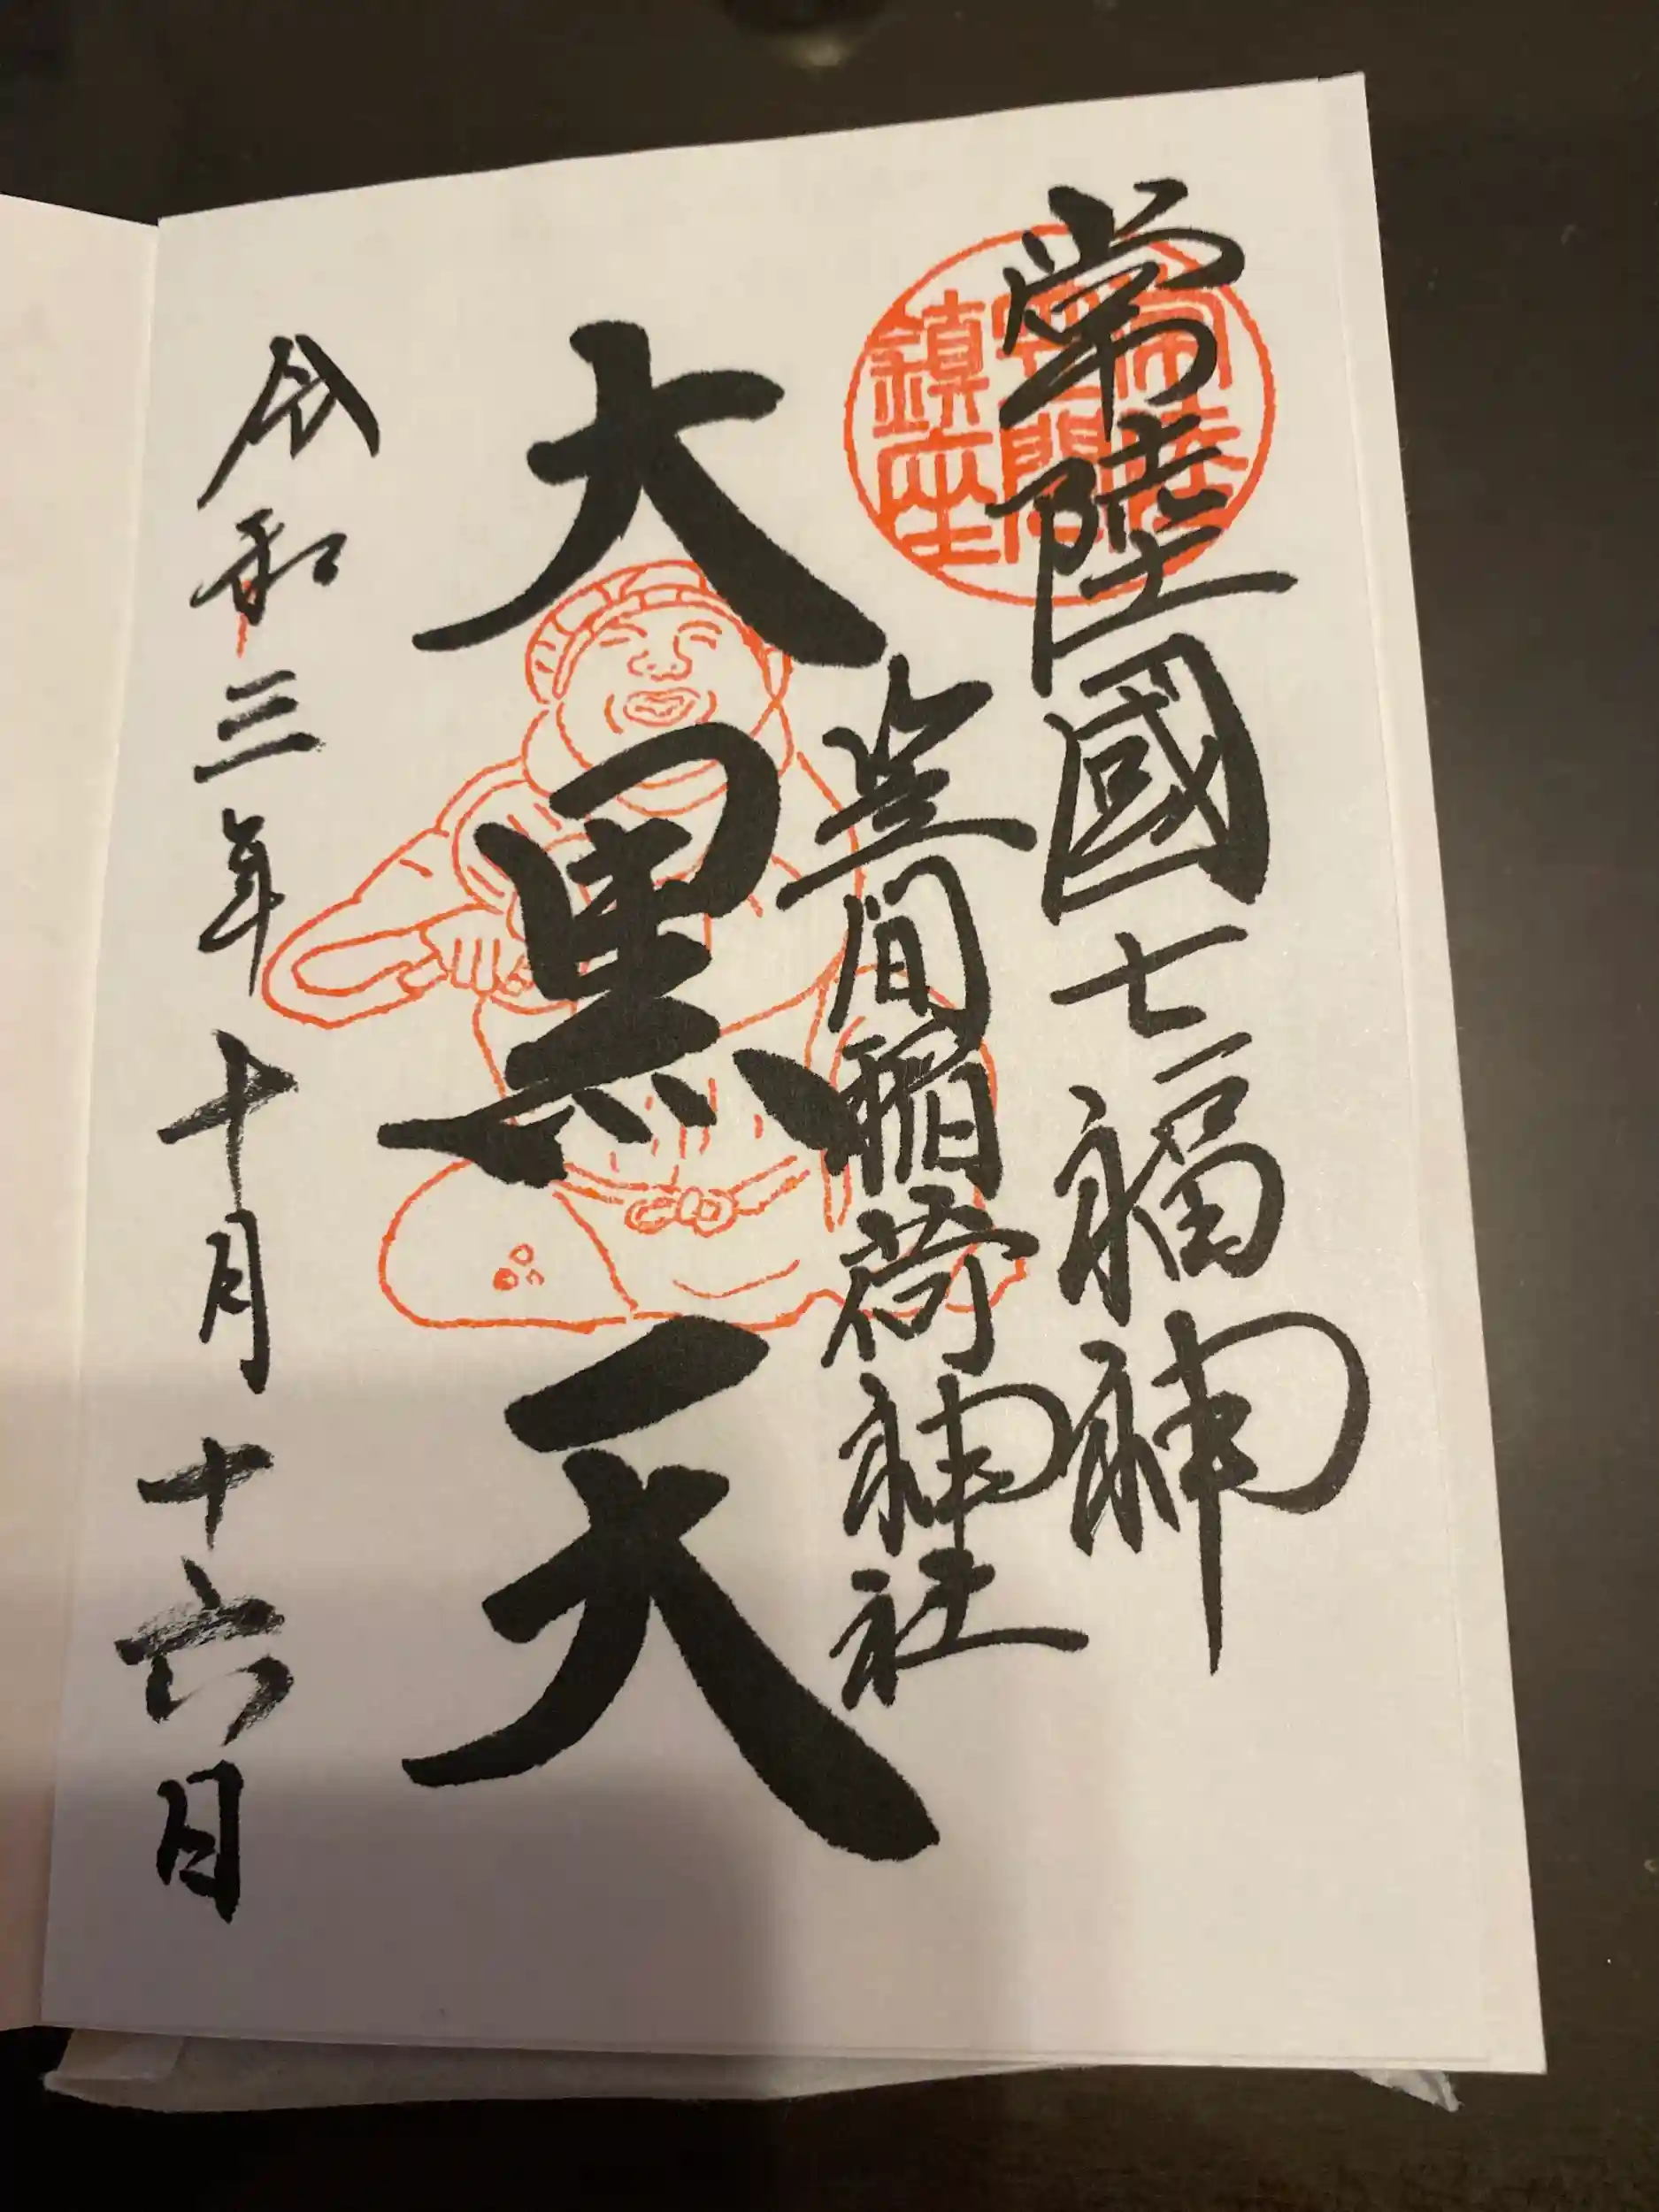 常陸國七福神
笠間稲荷神社
大黒天
令和三年十月十六日
鎮座